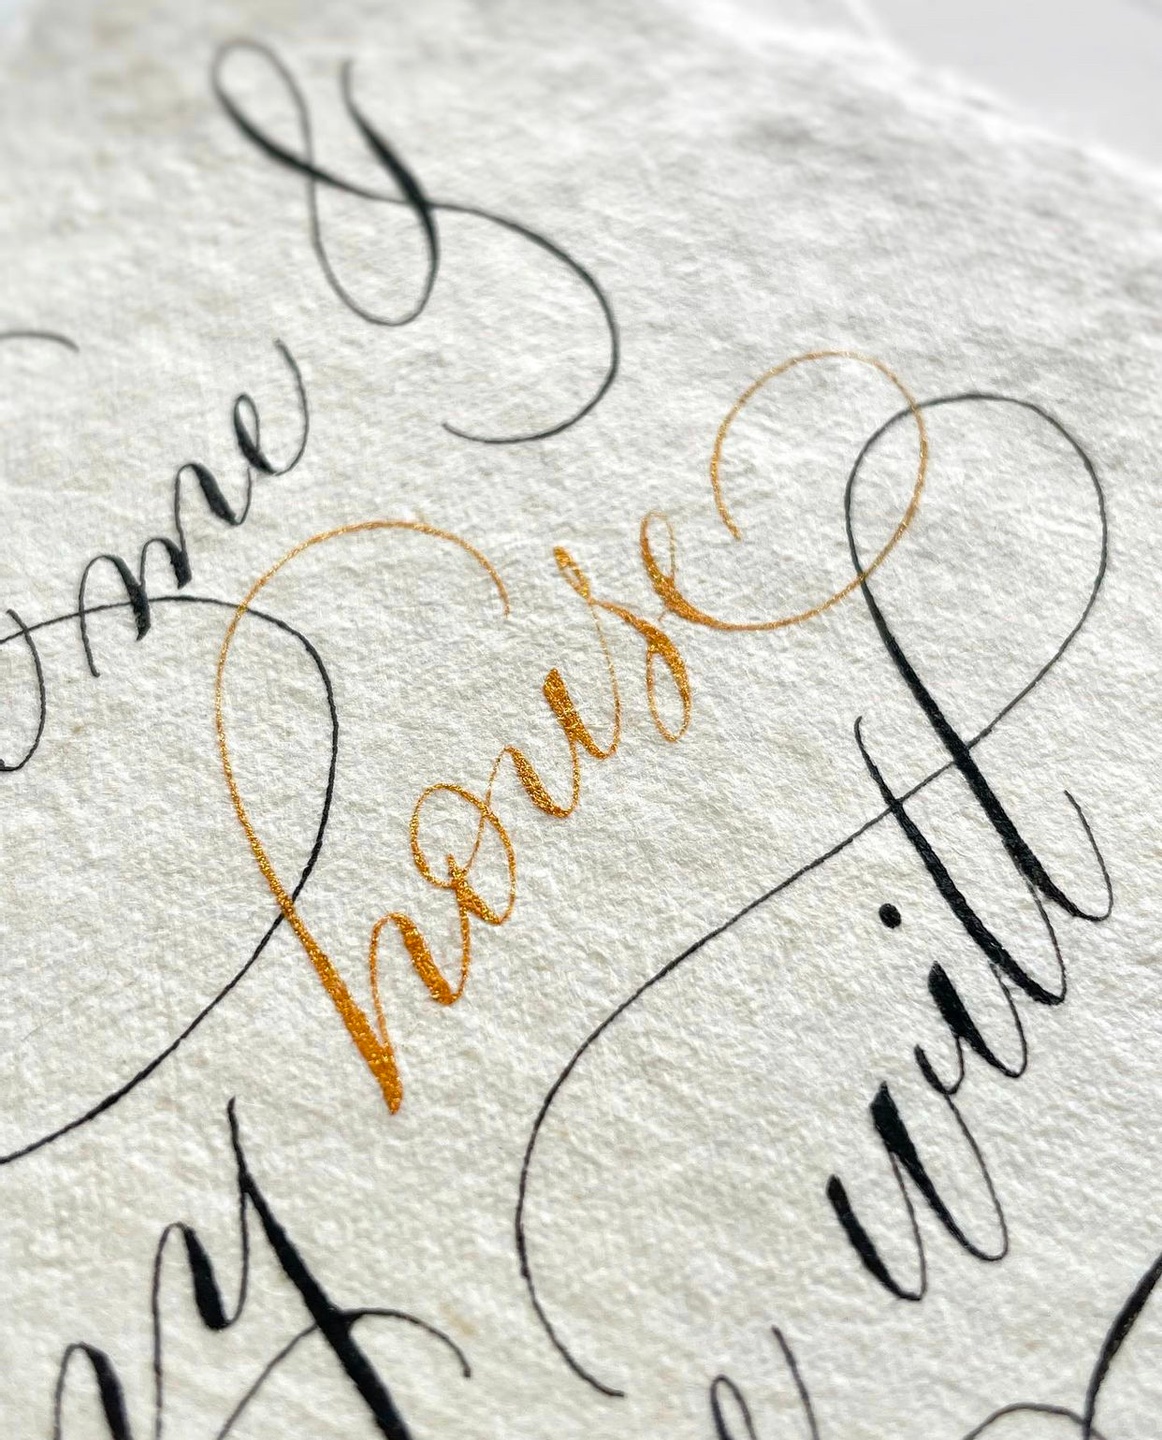 me &
my house
will